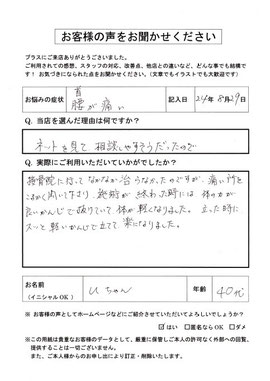 お客様の声をお聞かせください
プラスにご来店ありがとうございました。
ご利用されての感想、スタッフの対応、改善点、他店との違いなど、どんな事でも結構です！ お気づきになられた点をお聞かせください。（文章でもイラストでも大歓迎です）
お悩みの症状
首
腰が痛い
記入日 24年 8月29日
Q. 当店を選んだ理由は何ですか？
ネットを見て 相談しやすそうだったので
Q. 実際にご利用いただいていかがでしたか？
接骨院に行ってなかなか治らなかったのですが、痛い所を
こまかく聞いて下さり、施術が終わった時には 体の力が
良いかんじで抜けていて体が軽くなりました。立った時に
スッと軽いかんじで立てて楽になりました。
お名前
（イニシャルOK）
Uちゃん
年齢
40代
※ お客様の声としてホームページなどにご紹介させていただいてよろしいでしょうか？
☑はい □匿名ならOK □ダメ
※この用紙は貴重なお客様のデータとして、厳重に保管しご本人の許可なく外部への回覧、
提供することは一切ございません。
また、ご本人様からのお申し出により訂正・削除いたします。